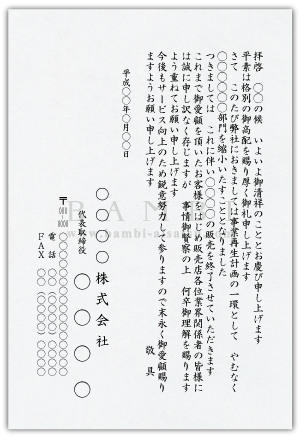 拝啓　〇〇の候　いよいよ御清祥のこととお慶び申し上げます
平素は格別の御高配を賜り厚く御礼申し上げます
さて　このたび弊社におきましては事業再生計画の一環として　やむなく
〇〇〇〇〇部門を縮小いたすこととなりました
つきましては　これに伴い〇〇〇〇の販売を終了させていただきます
これまで御愛顧を頂いたお客様をはじめ販売店各位業界関係者の皆様に
は誠に申し訳なく存じますが　事情御賢察の上　何卒御理解を賜ります
よう重ねてお願い申し上げます
今後もサービス向上のため鋭意努力して参りますので末永く御愛顧賜り
ますようお願い申し上げます
敬具
平成〇〇年〇月〇〇日
〇〇〇〇株式会社
代表取締役　〇〇〇〇
〒000-0000
電話（〇〇〇）〇〇〇〇
ＦＡＸ（〇〇〇）〇〇〇〇